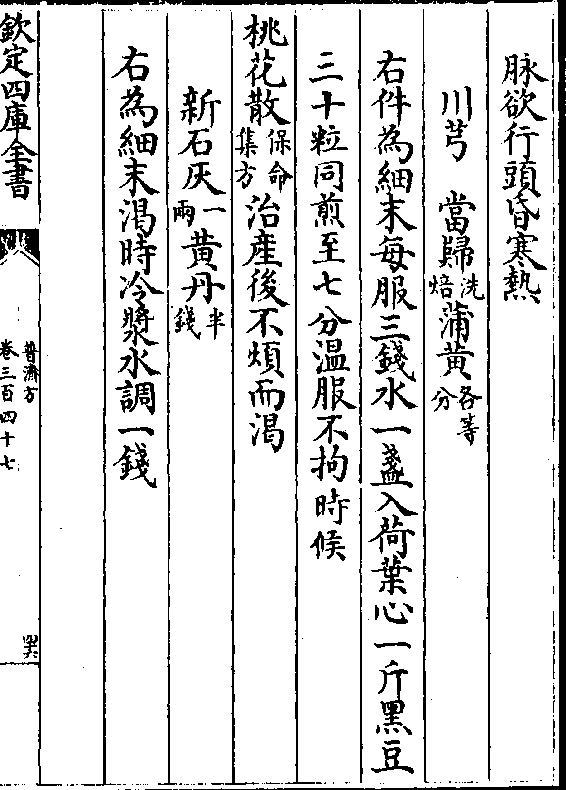 脉欲行頭昏寒熱
川芎　當歸洗焙　蒲黄各等分
右件為細末每服三錢水一盞入荷葉心一斤黑豆
三十粒同煎至七分温服不拘時候
桃花散保命集方　治産後不煩而渴
新石灰一兩　黄丹半錢
右為細末渴時冷漿水調一錢
欽定四庫全書
普濟方
卷三百四十七